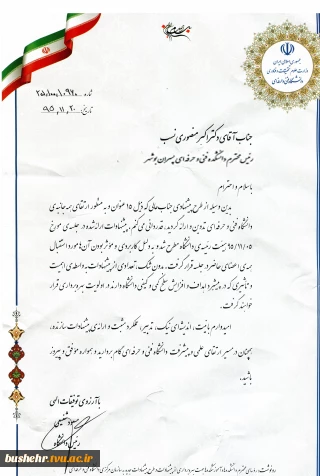 جمهوری اسلامی ایران
وزارت علوم، تحقیقات و فناوری
دانشگاه فنی و حرفه‌ای
شماره
تاریخ: ۹۵٫۱۱٫۲۰
جناب آقای دکتر اکبر منصوری نسب
رئیس محترم دانشکده فنی و حرفه ای پسران بوشهر
با سلام و احترام
بدین وسیله از طرح پیشنهادی جناب‌عالی که ذیل ۱۵ عنوان و به منظور ارتقای همه جانبه‌ی
دانشگاه فنی و حرفه‌ای تدوین و ارائه گردید، قدردانی می‌کنم. پیشنهادات ارائه شده در جلسه‌ی مورخ
۹۵/۱۱/۰۵ هیئت رئیسه‌ی دانشگاه مطرح شد و به دلیل کاربردی و مؤثر بودن آن‌ها مورد استقبال
همه‌ی اعضای حاضر در جلسه قرار گرفت. بدون شک، تعدادی از پیشنهادات به واسطه‌ی اهمیت
و تأثیری که در پیشبرد اهداف و افزایش سطح کمی و کیفی دانشگاه دارند در اولویت بهره‌برداری قرار
خواهند گرفت.
امیدوارم با نیت، اندیشه‌ی نیک، تدبیر، عملکرد مثبت و ارائه‌ی پیشنهادات سازنده،
همچنان در مسیر ارتقای علمی و پیشرفت دانشگاه فنی و حرفه‌ای گام بردارید و همواره موفق و پیروز
باشید.
با آرزوی توفیقات الهی
رئیس دانشگاه
bushehr.tvu.ac.ir